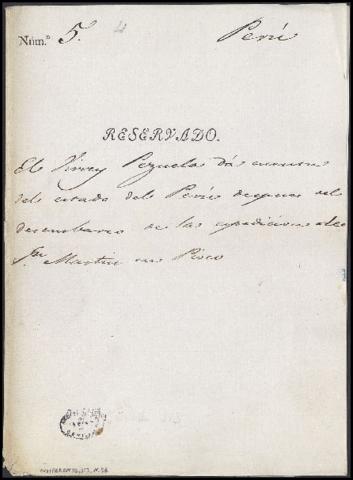 Núm.º 5. Perú
RESERVADO.
El Virrey Pezuela dá cuenta
del estado del Perú despues del
desembarco de la expedicion de
Sn Martin en Pisco